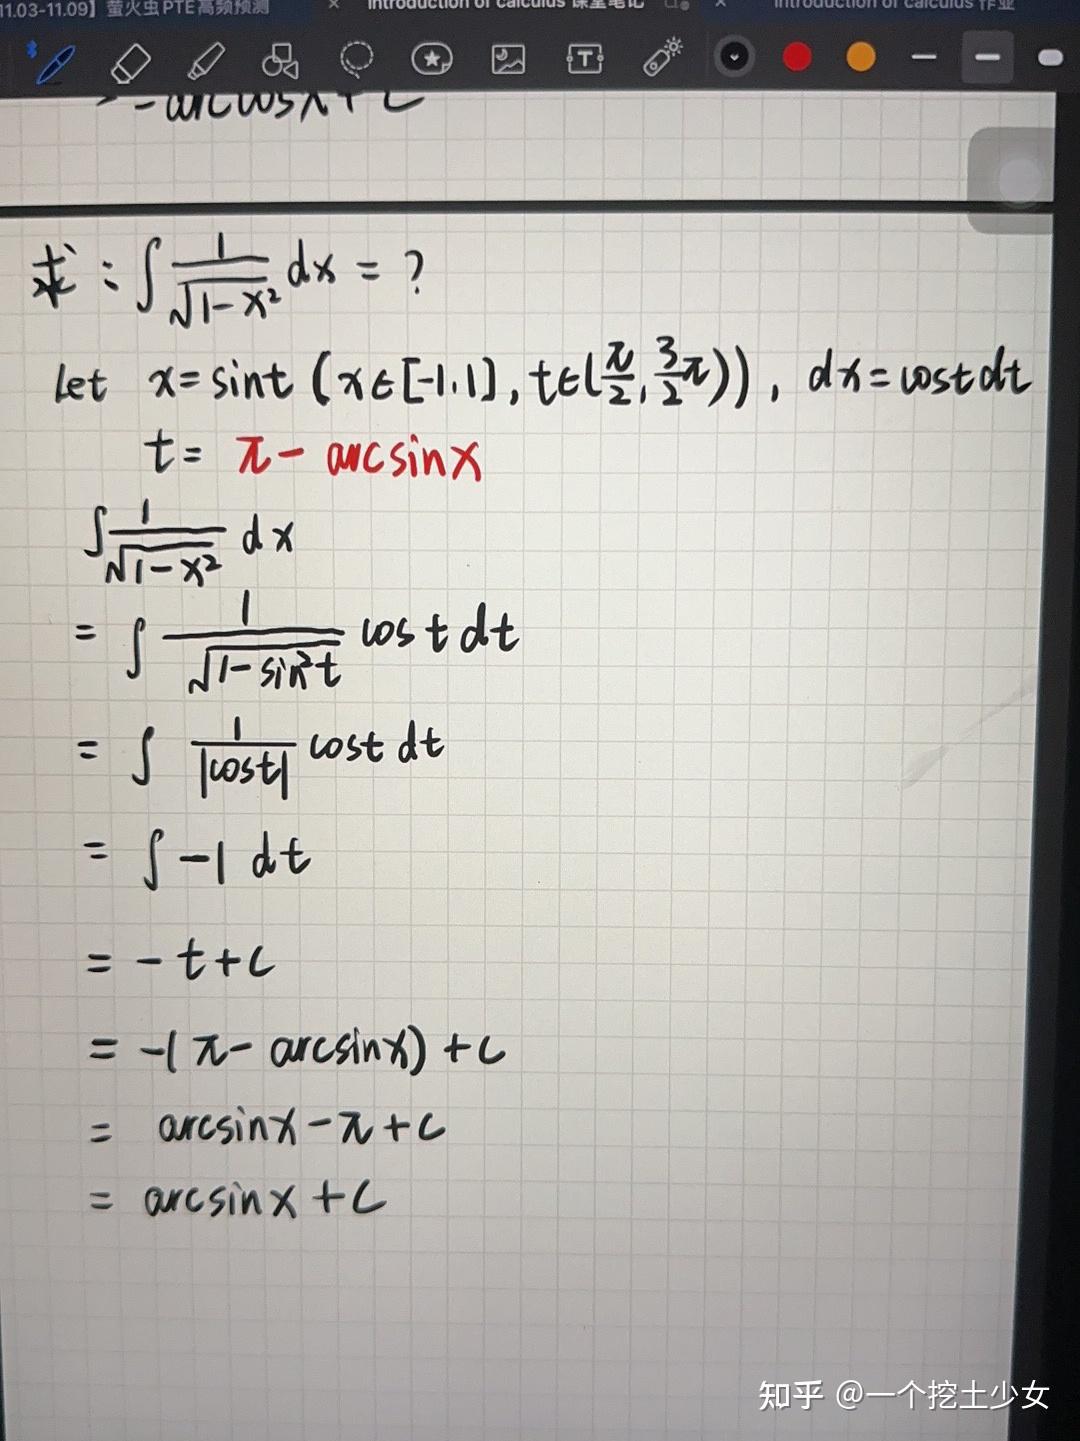 11.03-11.09】萤火虫PTE高频预测 × Introduction of calculus 课堂笔记 × Introduction of calculus 作业
- arccosx + C
求：∫ 1/√(1-x²) dx = ?
Let x = sint (x∈[-1,1], t∈(π/2, 3/2π)), dx = cost dt
t = π - arcsinx
∫ 1/√(1-x²) dx
= ∫ 1/√(1-sin²t) cos t dt
= ∫ 1/|cost| cost dt
= ∫ -1 dt
= - t + C
= -(π - arcsinx) + C
= arcsinx - π + C
= arcsinx + C
知乎 @一个挖土少女